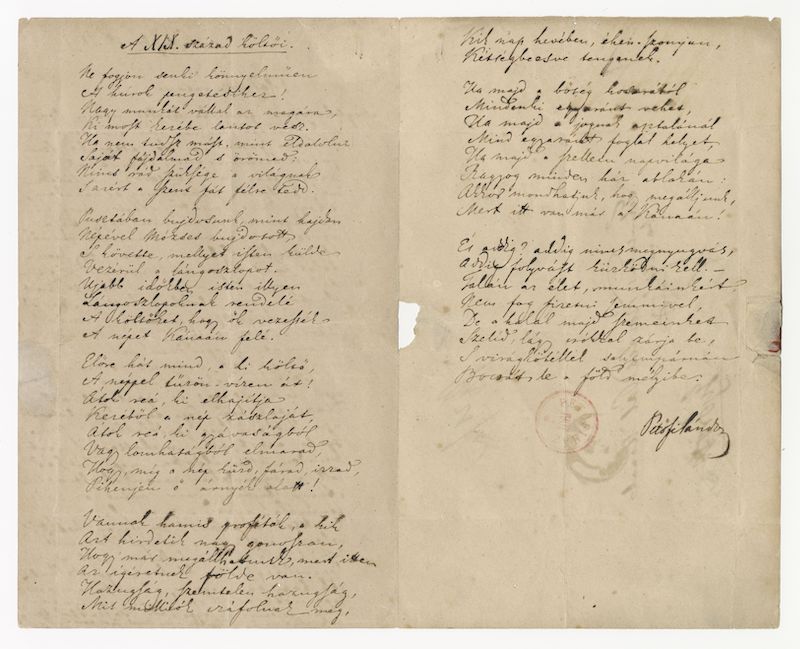 A XIX. század költői.
Ne fogjon senki könnyelműen
A húrok pengetésihez!
Nagy munkát vállal az magára,
Ki most kezébe lantot vesz.
Ha nem tudsz mást, mint eldalolni
Saját fájdalmad s örömed:
Nincs rád szüksége a világnak
S azért a szent fát félre tedd.
Pusztában bujdosunk, mint hajdan
Népével Mózses bujdosott
S követte, mellyet isten külde
Vezérül a lángoszlopot.
Ujabb időkben isten illyen
Lángoszlopoknak rendelé
A költőket, hogy ők vezessék
A népet Kánaán felé.
Előre hát mind, a ki költő,
A néppel tűzön-vizen át!
Átok reá, ki elhajítja
Kezéből a nép zászlaját,
Átok reá, ki gyávaságból
Vagy lomhaságból elmarad,
Hogy, míg a nép küzd, fárad, izzad,
Pihenjen ő árnyék alatt!
Vannak hamis próféták, a kik
Azt hirdetik nagy gonoszan,
Hogy már megállhatunk, mert itten
Az igéretnek földe van.
Hazugság, szemtelen hazugság,
Mit milliók cáfolnak meg,
Kik nap hevében, éhen-szomjan,
Kétségbeesve tengenek.
Ha majd a bőség kosarából
Mindenki egyaránt vehet,
Ha majd a jognak asztalánál
Mind egyaránt foglal helyet,
Ha majd a szellem napvilága
Ragyog minden ház ablakán:
Akkor mondhatjuk, hogy megálljunk,
Mert itt van már a Kánaán!
És addig? addig nincs megnyugvás,
Addig folyvást küszködni kell. –
Talán az élet, munkáinkért,
Nem fog fizetni semmivel,
De a halál majd szemeinket
Szelíd, lágy csókkal zárja be,
S virágkötéllel selyempárnán
Bocsát le a föld mélyibe.
Petőfi Sándor